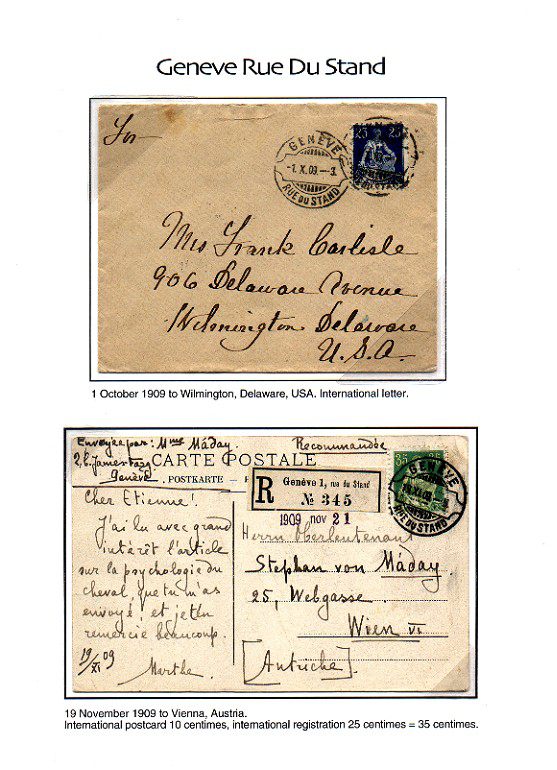 Geneve Rue Du Stand
For
GENÈVE
-1.X.09.-3.
RUE DU STAND
25 25
Mrs Frank Carlisle
906 Delaware Avenue
Wilmington Delaware
U.S.A.
1 October 1909 to Wilmington, Delaware, USA. International letter.
Envoyée par: Mme Máday.
Recommandée
2, b. James
Genève
CARTE POSTALE
POSTKARTE
35 35
GENÈVE
RUE DU STAND
R
Genève 1, rue du Stand
№ 345
1909 nov 21
Cher Etienne!
J'ai lu avec grand
intérêt l'article
sur la psychologie du
cheval, que tu m'as
envoyé, et je t'en
remercie beaucoup.
19/XI 09
Marthe
Herrn Oberleutenant
Stephan von Máday
25, Webgasse
Wien VI
[Autriche]
19 November 1909 to Vienna, Austria.
International postcard 10 centimes, international registration 25 centimes = 35 centimes.